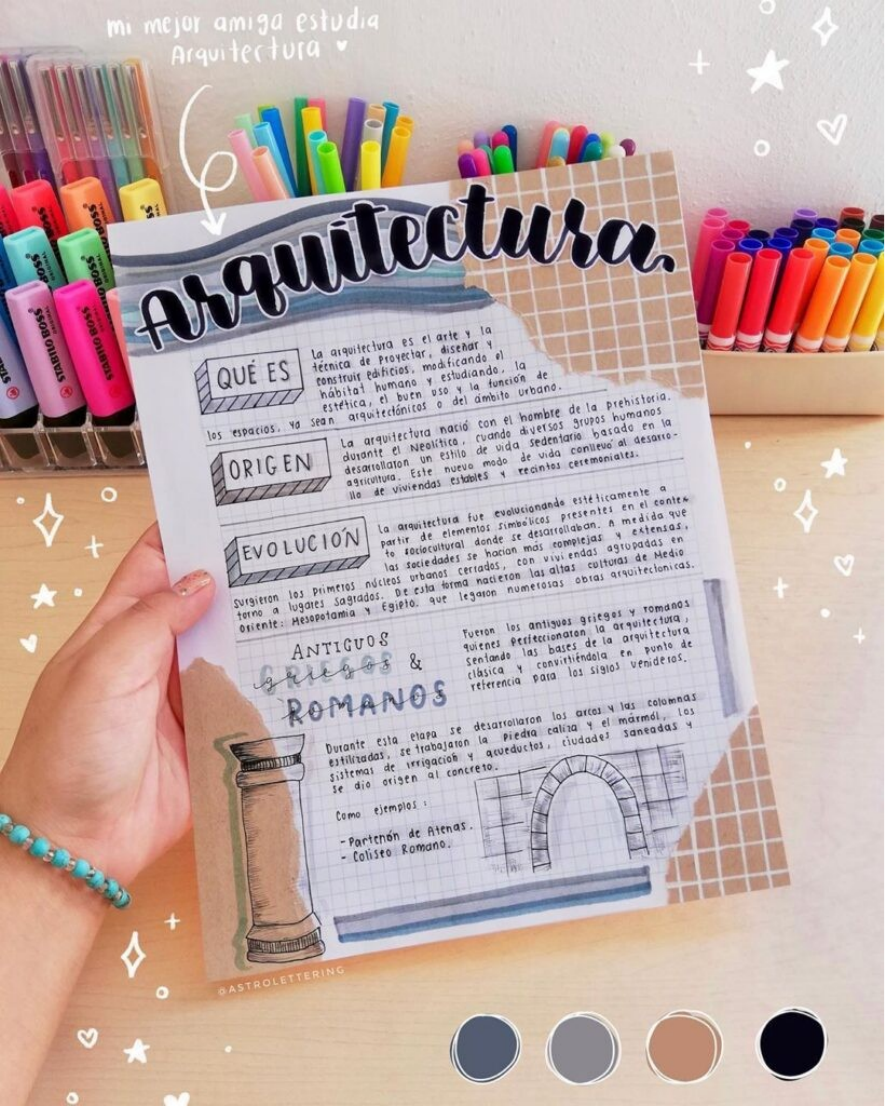 mi mejor amiga estudia
Arquitectura
Arquitectura
QUÉ ES
La arquitectura es el arte y la
técnica de Proyectar, diseñar y
construir edificios, modificando el
hábitat humano y estudiando, la
estética, el buen uso y la función de
los espacios, ya sean arquitectónicos o del ámbito urbano.
ORIGEN
La arquitectura nació con el hombre de la prehistoria,
durante el Neolítico, cuando diversos grupos humanos
desarrollaron un estilo de vida sedentario basado en la
agricultura. Este nuevo modo de vida conllevó al desarro-
llo de viviendas estables y recintos ceremoniales.
EVOLUCIÓN
La arquitectura fue evolucionando estéticamente a
partir de elementos simbólicos presentes en el contex
to sociocultural donde se desarrollaban. A medida que
las sociedades se hacían más complejas y extensas,
surgieron los Primeros núcleos urbanos cerrados, con viviendas agrupadas en
torno a lugares sagrados. De esta forma nacieron las altas culturas de Medio
Oriente: Mesopotamia y Egipto, que legaron numerosas obras arquitectónicas.
ANTIGUOS
GRIEGOS &
griegos
ROMANOS
romanos
Fueron los antiguos griegos y romanos
quienes perfeccionaron la arquitectura,
sentando las bases de la arquitectura
clásica y convirtiéndola en punto de
referencia para los siglos venideros.
Durante esta etapa se desarrollaron los arcos y las columnas
estilizadas, se trabajaron la piedra caliza y el mármol, los
sistemas de irrigación y acueductos, ciudades saneadas y
se dio origen al concreto.
Como ejemplos:
- Partenón de Atenas.
- Coliseo Romano.
@ASTROLETTERING
STABILO BOSS
STABILO BOSS